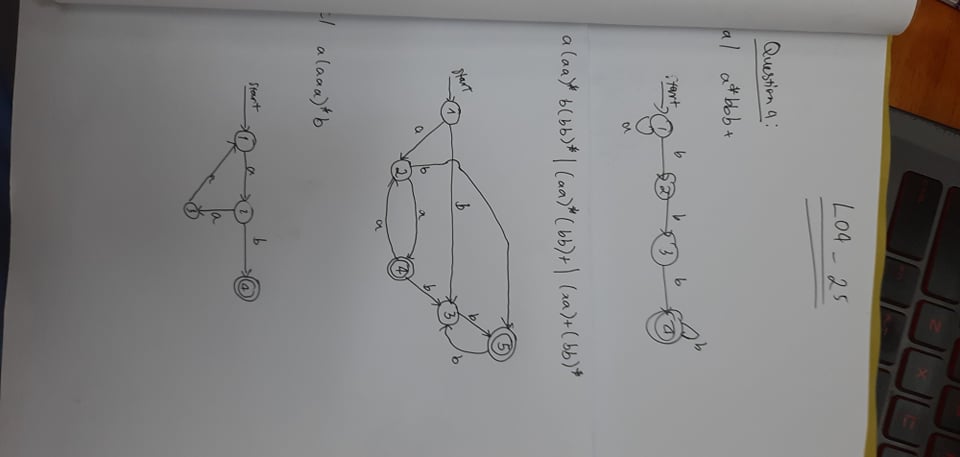 L04 - 25
Question 4:
a/ a*bbb+
start 1 b 2 b 3 b 4
a b
a(aa)*b(bb)* | (aa)*(bb)+ | (aa)+(bb)*
start 1
a b
2 b a a 4 b 3 b 5
b
c/ a(aaa)*b
start 1 a 2 b 4
a 3 a